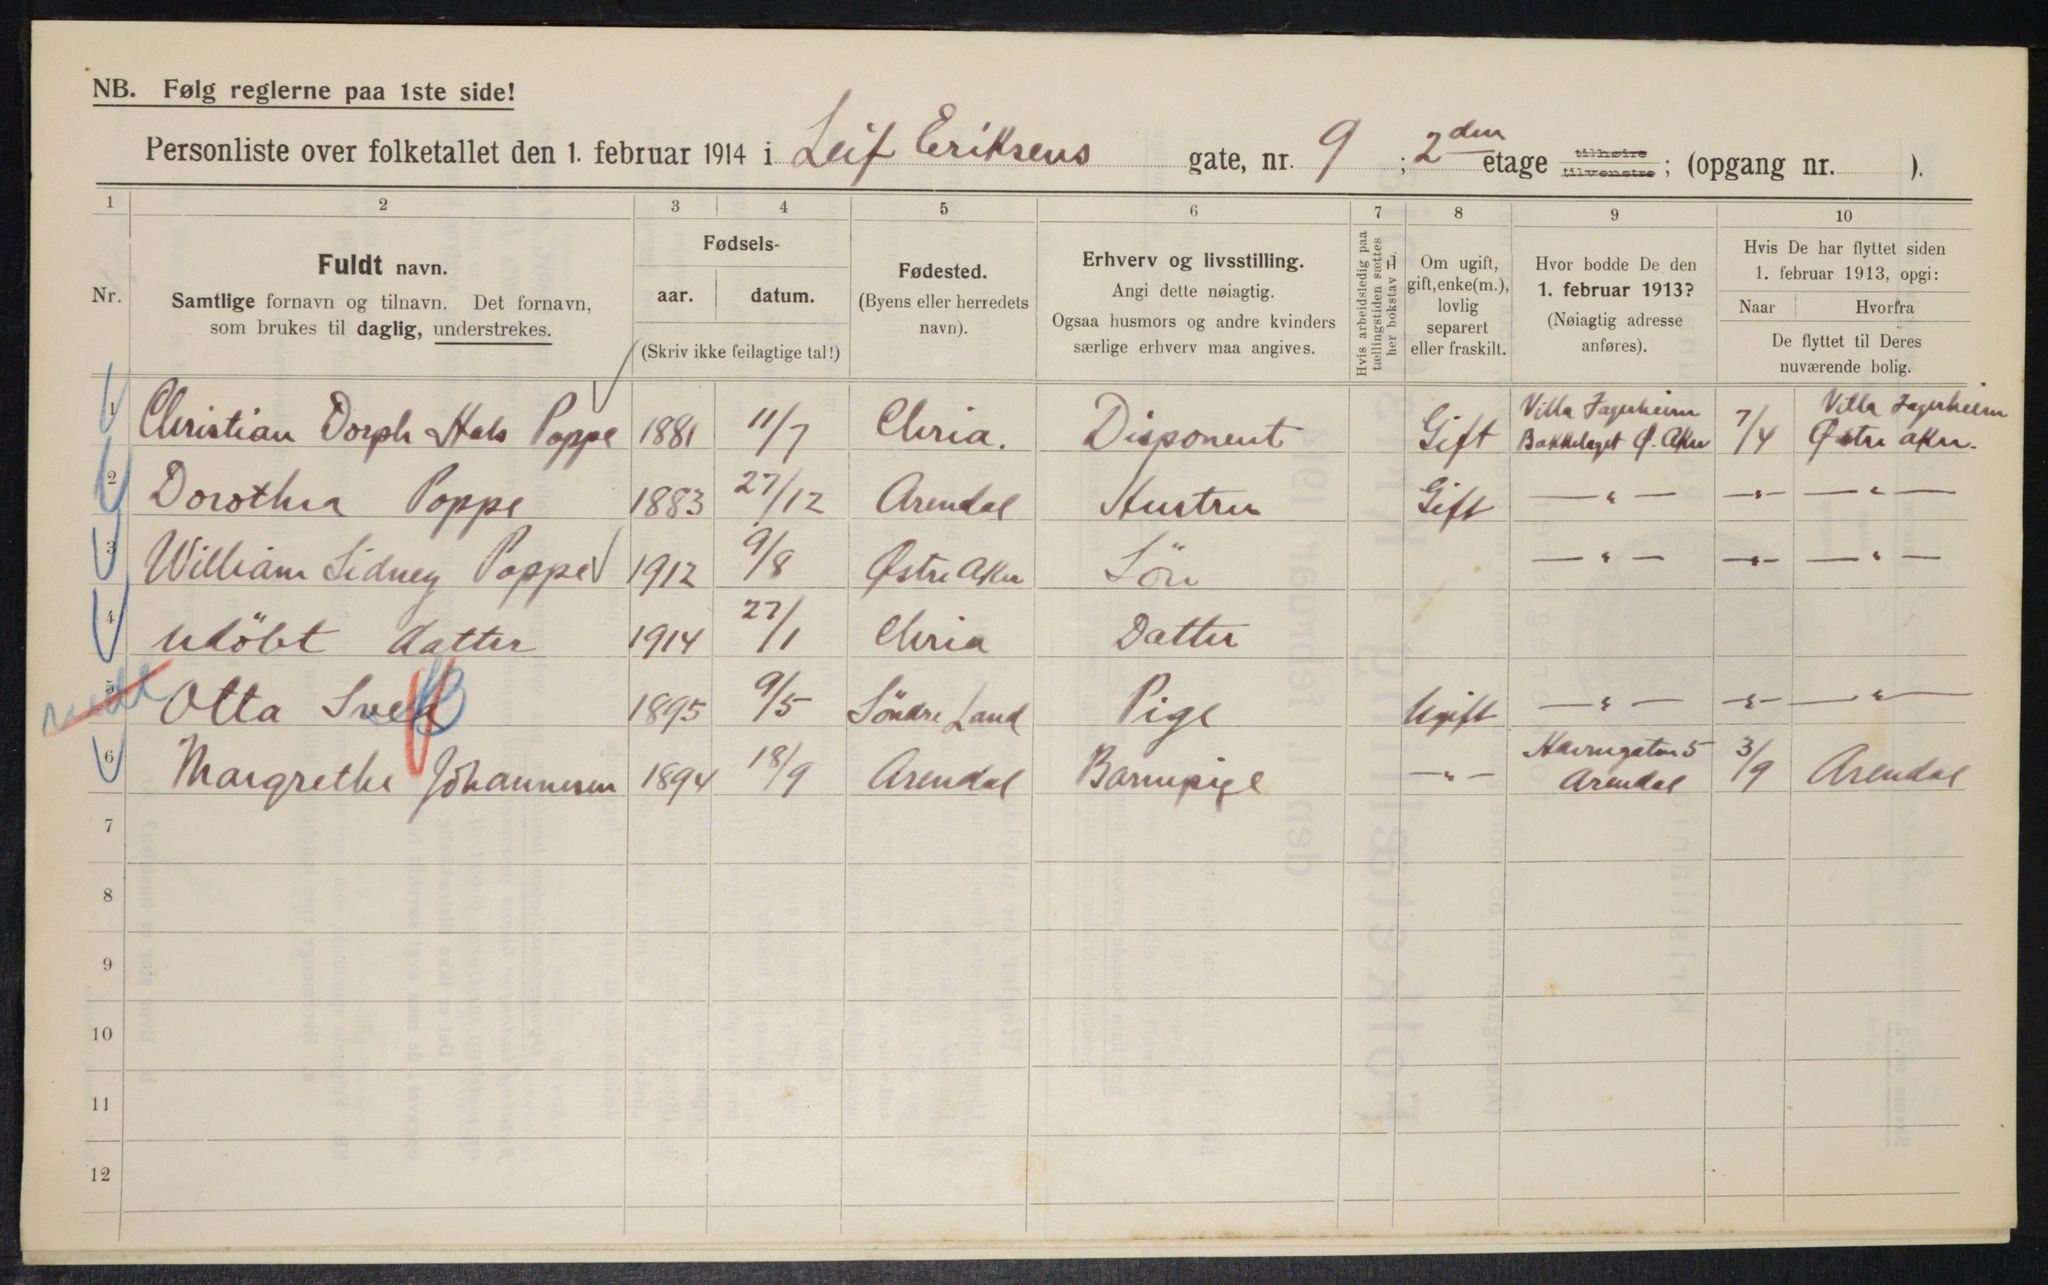 NB. Følg reglerne paa 1ste side!
Personliste over folketallet den 1. februar 1914 i Leif Eriksens gate, nr. 9 ; 2den etage tilhøire tilvenstre ; (opgang nr. ).
1 2 3 4 5 6 7 8 9 10
Nr.
Fuldt navn.
Samtlige fornavn og tilnavn. Det fornavn,
som brukes til daglig, understrekes.
Fødsels-
aar. datum.
(Skriv ikke feilagtige tal!)
Fødested.
(Byens eller herredets
navn).
Erhverv og livsstilling.
Angi dette nøiagtig.
Ogsaa husmors og andre kvinders
særlige erhverv maa angives.
Hvis arbeidsledig paa
tællingstiden sættes
her bokstav L.
Om ugift,
gift, enke(m.),
lovlig
separert
eller fraskilt.
Hvor bodde De den
1. februar 1913?
(Nøiagtig adresse
anføres).
Hvis De har flyttet siden
1. februar 1913, opgi:
Naar Hvorfra
De flyttet til Deres
nuværende bolig.
1 Christian Dorph Hals Poppe 1881 11/7 Chria. Disponent Gift Villa Jagerheim Bakkelaget Ø. Aker 7/4 Villa Jagerheim Østre Aker.
2 Dorothea Poppe 1883 27/12 Arendal Hustru Gift — " — — " — — " —
3 William Sidney Poppe 1912 9/8 Østre Aker Sön — " — — " — — " —
4 Udöbt datter 1914 27/1 Chria Datter
5 Otta 1895 9/5 Söndre Land Pige Ugift — " — — " — — " —
6 Margrethe Johannesen 1894 18/9 Arendal Barnepige — " — Havnegaten 5 Arendal 3/9 Arendal
7
8
9
10
11
12